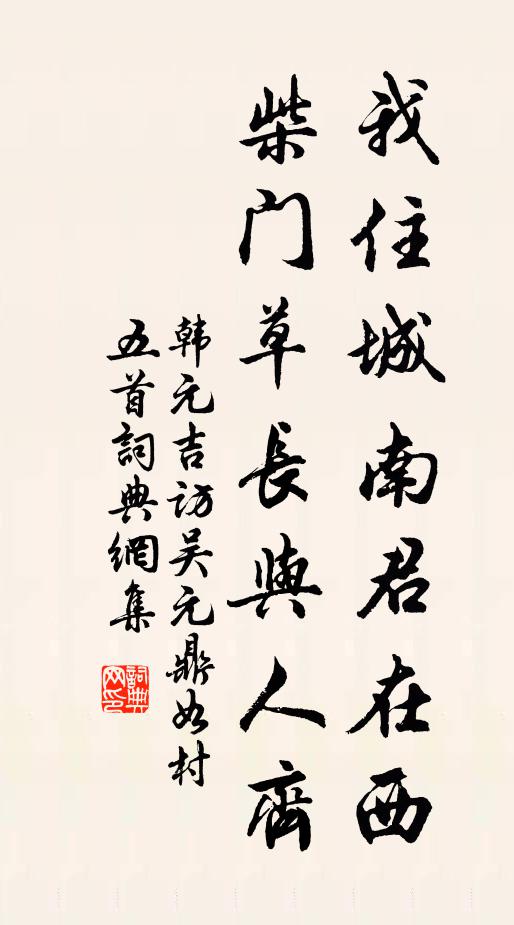 我住城南君在西
柴门草長與人齊
韩元吉访吴元鼎如村
五首詞典網集
詞典网印